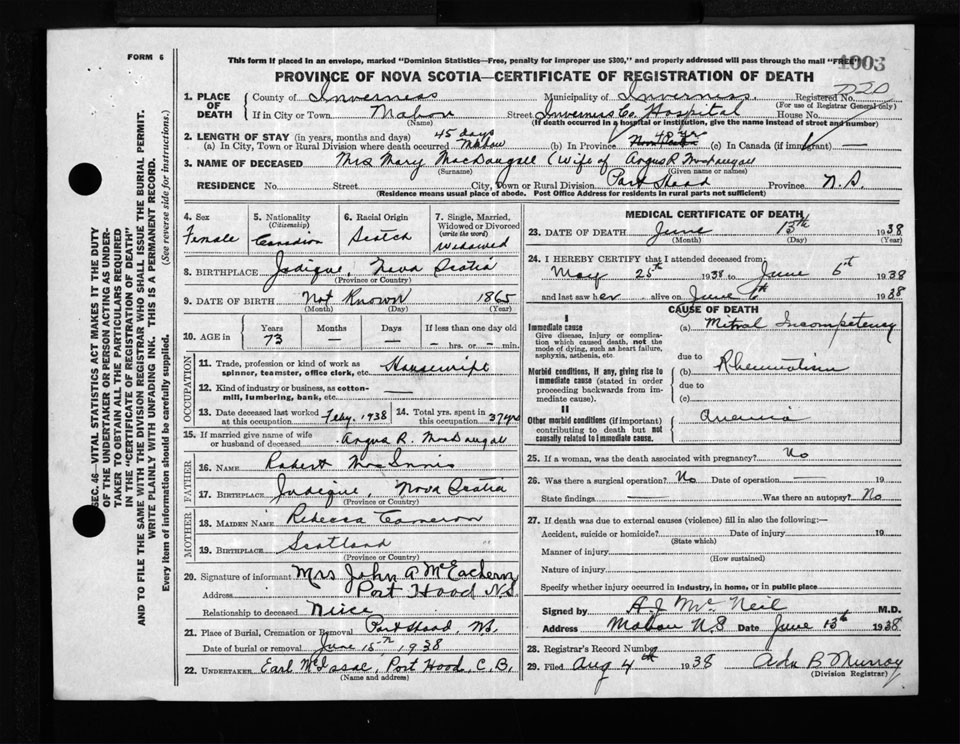 FORM 6
This form if placed in an envelope, marked "Dominion Statistics—Free, penalty for improper use $300," and properly addressed will pass through the mail "FREE"
1003
PROVINCE OF NOVA SCOTIA—CERTIFICATE OF REGISTRATION OF DEATH
SEC. 46—VITAL STATISTICS ACT MAKES IT THE DUTY
OF THE UNDERTAKER OR PERSON ACTING AS UNDER-
TAKER TO OBTAIN ALL THE PARTICULARS REQUIRED
IN THE "CERTIFICATE OF REGISTRATION OF DEATH"
AND TO FILE THE SAME WITH THE DIVISION REGISTRAR WHO SHALL ISSUE THE BURIAL PERMIT.
WRITE PLAINLY WITH UNFADING INK. THIS IS A PERMANENT RECORD.
Every item of information should be carefully supplied. (See reverse side for instructions.)
1. PLACE OF DEATH County of Inverness Municipality of Inverness Registered No. 720
(For use of Registrar General only)
If in City or Town Mabou Street Inverness Co. Hospital House No.
(Name) (If death occurred in a hospital or institution, give the name instead of street and number)
2. LENGTH OF STAY (in years, months and days) 45 days
(a) In City, Town or Rural Division where death occurred Mabou (b) In Province 73 yr (c) In Canada (if immigrant) —
3. NAME OF DECEASED Mrs Mary MacDougall (Wife of Angus R MacDougall
(Surname) (Given name or names)
RESIDENCE No. Street City, Town or Rural Division Port Hood Province N.S.
(Residence means usual place of abode. Post Office Address for residents in rural parts not sufficient)
4. Sex Female
5. Nationality (Citizenship) Canadian
6. Racial Origin Scotch
7. Single, Married, Widowed or Divorced (write the word) Widowed
8. BIRTHPLACE Judique, Nova Scotia
(Province or Country)
9. DATE OF BIRTH Not Known 1865
(Month) (Day) (Year)
10. AGE in Years 73 Months — Days — If less than one day old — hrs. or — min.
OCCUPATION
11. Trade, profession or kind of work as spinner, teamster, office clerk, etc. Housewife
12. Kind of industry or business, as cotton-mill, lumbering, bank, etc. —
13. Date deceased last worked at this occupation Feby. 1938 14. Total yrs. spent in this occupation 37 yrs
15. If married give name of wife or husband of deceased Angus R. MacDougall
FATHER
16. NAME Robert MacInnis
17. BIRTHPLACE Judique, Nova Scotia
(Province or Country)
MOTHER
18. MAIDEN NAME Rebecca Cameron
19. BIRTHPLACE Scotland
(Province or Country)
20. Signature of informant Mrs John A McEachern
Address Port Hood N.S.
Relationship to deceased Niece
21. Place of Burial, Cremation or Removal Port Hood, N.S.
Date of burial or removal June 15th, 1938
22. UNDERTAKER Earl McIsaac, Port Hood, C.B.
(Name and address)
MEDICAL CERTIFICATE OF DEATH
23. DATE OF DEATH June 13th 1938
(Month) (Day) (Year)
24. I HEREBY CERTIFY that I attended deceased from:
May 25th 1938 to June 6th 1938
and last saw her alive on June 6th 1938
CAUSE OF DEATH
I
Immediate cause
Give disease, injury or complication which caused death, not the mode of dying, such as heart failure, asphyxia, asthenia, etc.
(a) Mitral Incompetency
due to
Morbid conditions, if any, giving rise to immediate cause (stated in order proceeding backwards from immediate cause).
(b) Rheumatism
due to
(c)
II
Other morbid conditions (if important) contributing to death but not causally related to immediate cause.
Anemia
25. If a woman, was the death associated with pregnancy? No
26. Was there a surgical operation? No Date of operation — 19
State findings — Was there an autopsy? No
27. If death was due to external causes (violence) fill in also the following:—
Accident, suicide or homicide? Date of injury 19
(State which)
Manner of injury
(How sustained)
Nature of injury
Specify whether injury occurred in industry, in home, or in public place
Signed by A. J. McNeil M.D.
Address Mabou N.S Date June 13th 1938
28. Registrar's Record Number
29. Filed Aug 4th 1938 Ada B Murray
(Division Registrar)